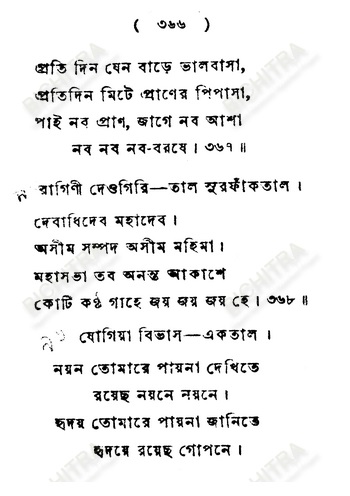 ( ৩৬৬ )
প্রতি দিন যেন বাড়ে ভালবাসা,
প্রতিদিন মিটে প্রাণের পিপাসা,
পাই নব প্রাণ, জাগে নব আশা
নব নব নব-বরষে। ৩৬৭॥
রাগিণী দেওগিরি—তাল সুরফাঁকতাল।
দেবাধিদেব মহাদেব।
অসীম সম্পদ অসীম মহিমা।
মহাসভা তব অনন্ত আকাশে
কোটি কণ্ঠ গাহে জয় জয় জয় হে। ৩৬৮॥
যোগিয়া বিভাস—একতাল।
নয়ন তোমারে পায়না দেখিতে
রয়েছ নয়নে নয়নে।
হৃদয় তোমারে পায়না জানিতে
হৃদয়ে রয়েছ গোপনে।